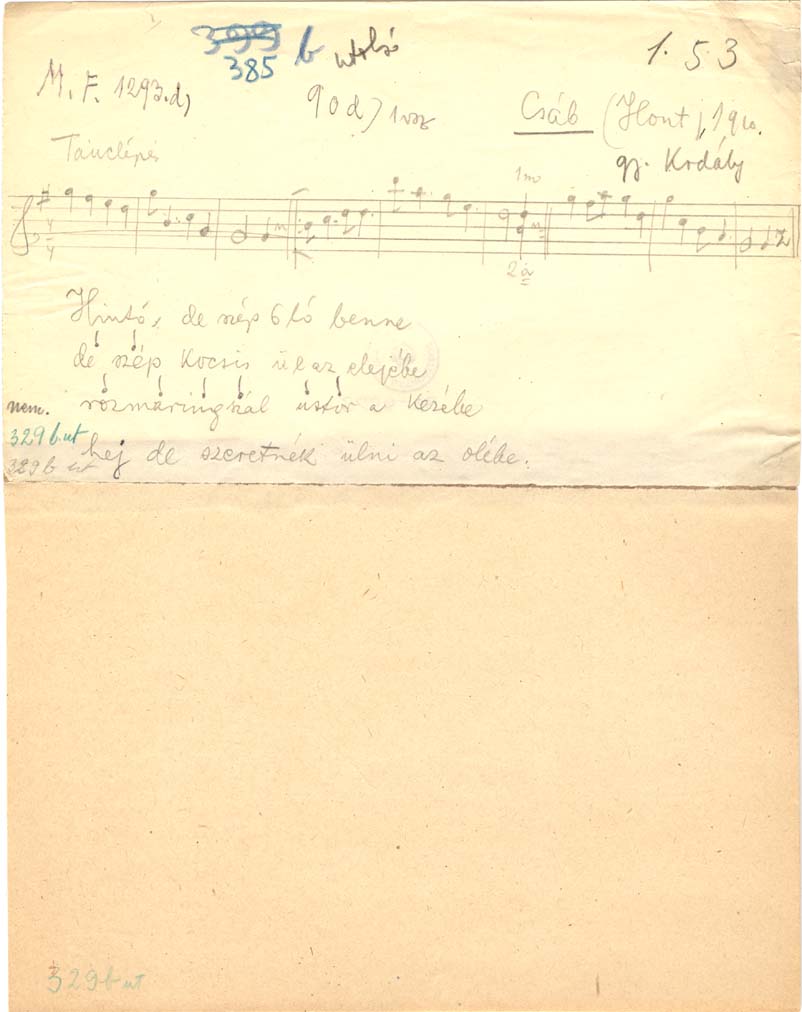 399 b utolsó
385
1. 5 3
M. F. 1293.d)
90d) 1vsz
Csáb (Hont j, 1910.
gj. Kodály
Tánclépés
1mo
4
4
2a
Hintó, de szép 6 ló benne
de szép kocsis ül az elejébe
nem. rozmaringszál ustor a kezébe
329 b. ut
hej de szeretnék ülni az ölébe.
329 b ut
329 b ut